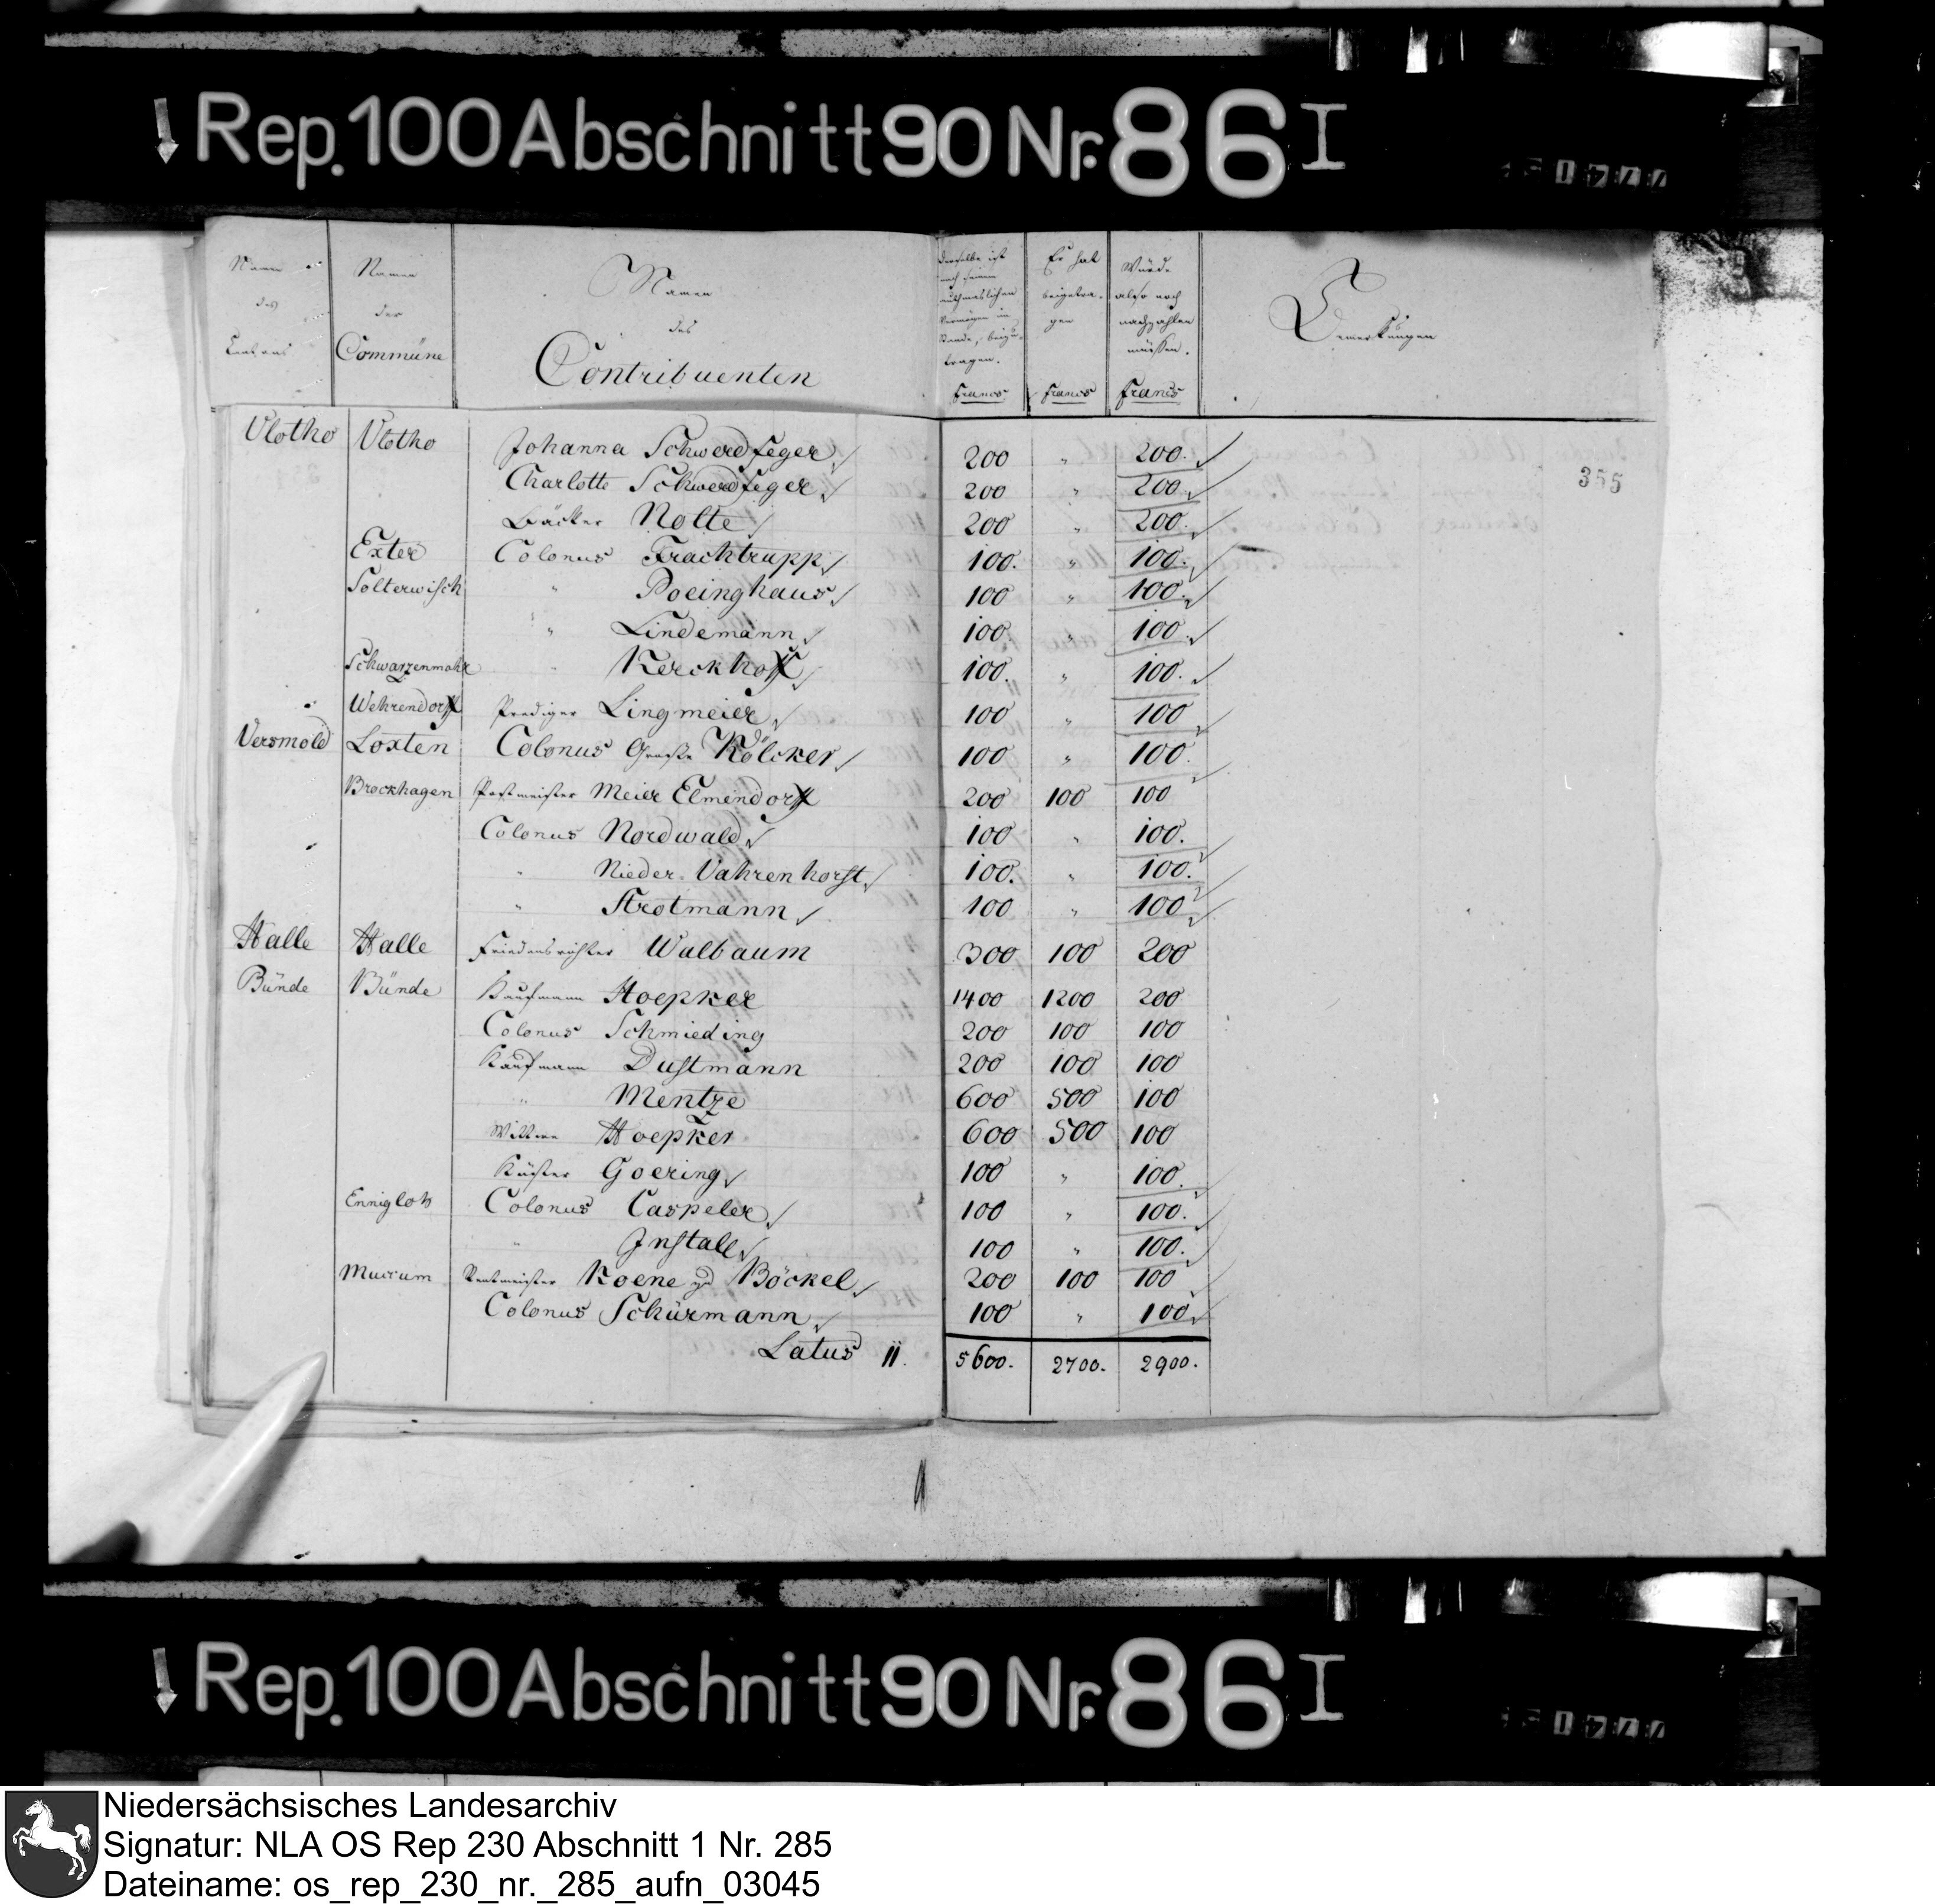 Rep. 100 Abschnitt 90 Nr. 86 I
Namen des Cantons
Namen der Commüne
Namen des Contribuenten
derselbe ist nach seinem muthmaslichen Vermögen im Stande, beizutragen. Francs
Er hat beigetragen Francs
Würde also noch nachzahlen müssen. Francs
Bemerkungen
355
Vlotho Vlotho Johanna Schwerdfeger 200 " 200.
Charlotte Schwerdfeger 200 " 200
Bäcker Nolte 200 " 200.
Exter Colonus Frachtrupp 100. " 100.
Solterwisch " Poeinghaus 100 " 100.
" Lindemann 100. " 100.
Schwarzenmohr " Kerckhoff 100. " 100.
Wehrendorff Prediger Lingmeier 100 " 100
Versmold Loxten Colonus Große Kölcker 100 " 100.
Brockhagen Postmeister Meier Elmendorff 200 100 100
Colonus Nordwald 100 " 100.
" Nieder-Vahrenhorst 100. " 100.
" Strotmann 100 " 100
Halle Halle Friedensrichter Walbaum 300 100 200
Bünde Bünde Kaufmann Hoepker 1400 1200 200
Colonus Schmieding 200 100 100
Kaufmann Dustmann 200 100 100
" Mentze 600 500 100
Wittwe Hoepker 600 500 100
Küster Goering 100 " 100.
Ennigloh Colonus Caspeler 100 " 100.
" Instale 100 " 100.
Muccum Rentmeister Koene zu Böckel 200 100 100
Colonus Schürmann 100 " 100
Latus II. 5600. 2700. 2900.
Rep. 100 Abschnitt 90 Nr. 86 I
Niedersächsisches Landesarchiv
Signatur: NLA OS Rep 230 Abschnitt 1 Nr. 285
Dateiname: os_rep_230_nr._285_aufn_03045